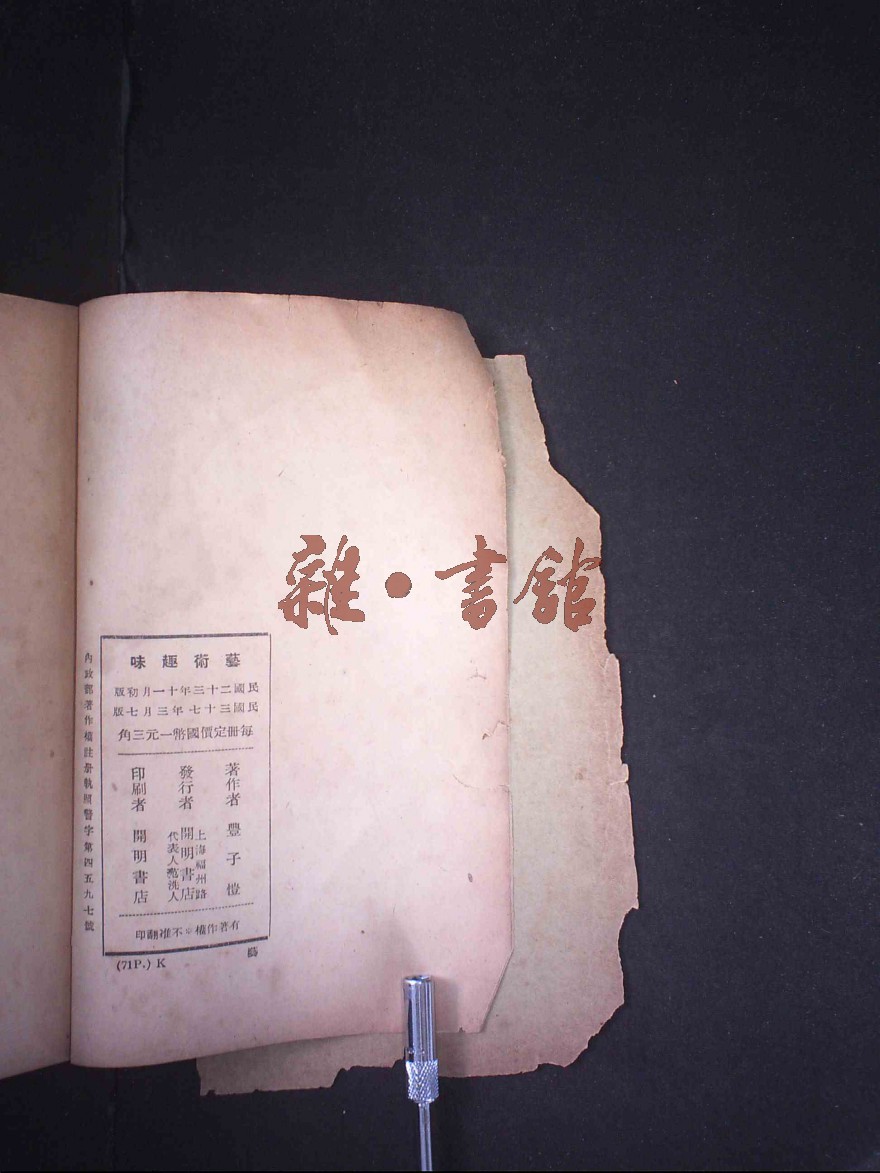 雜·書館
藝術趣味
民國二十三年十一月初版
民國三十七年三月七版
每冊定價國幣一元三角
著作者 豐子愷
發行者 上海福州路 開明書店 代表人范洗人
印刷者 開明書店
有著作權※不准翻印
內政部著作權註冊執照警字第四五九七號
(71P.) K
藝